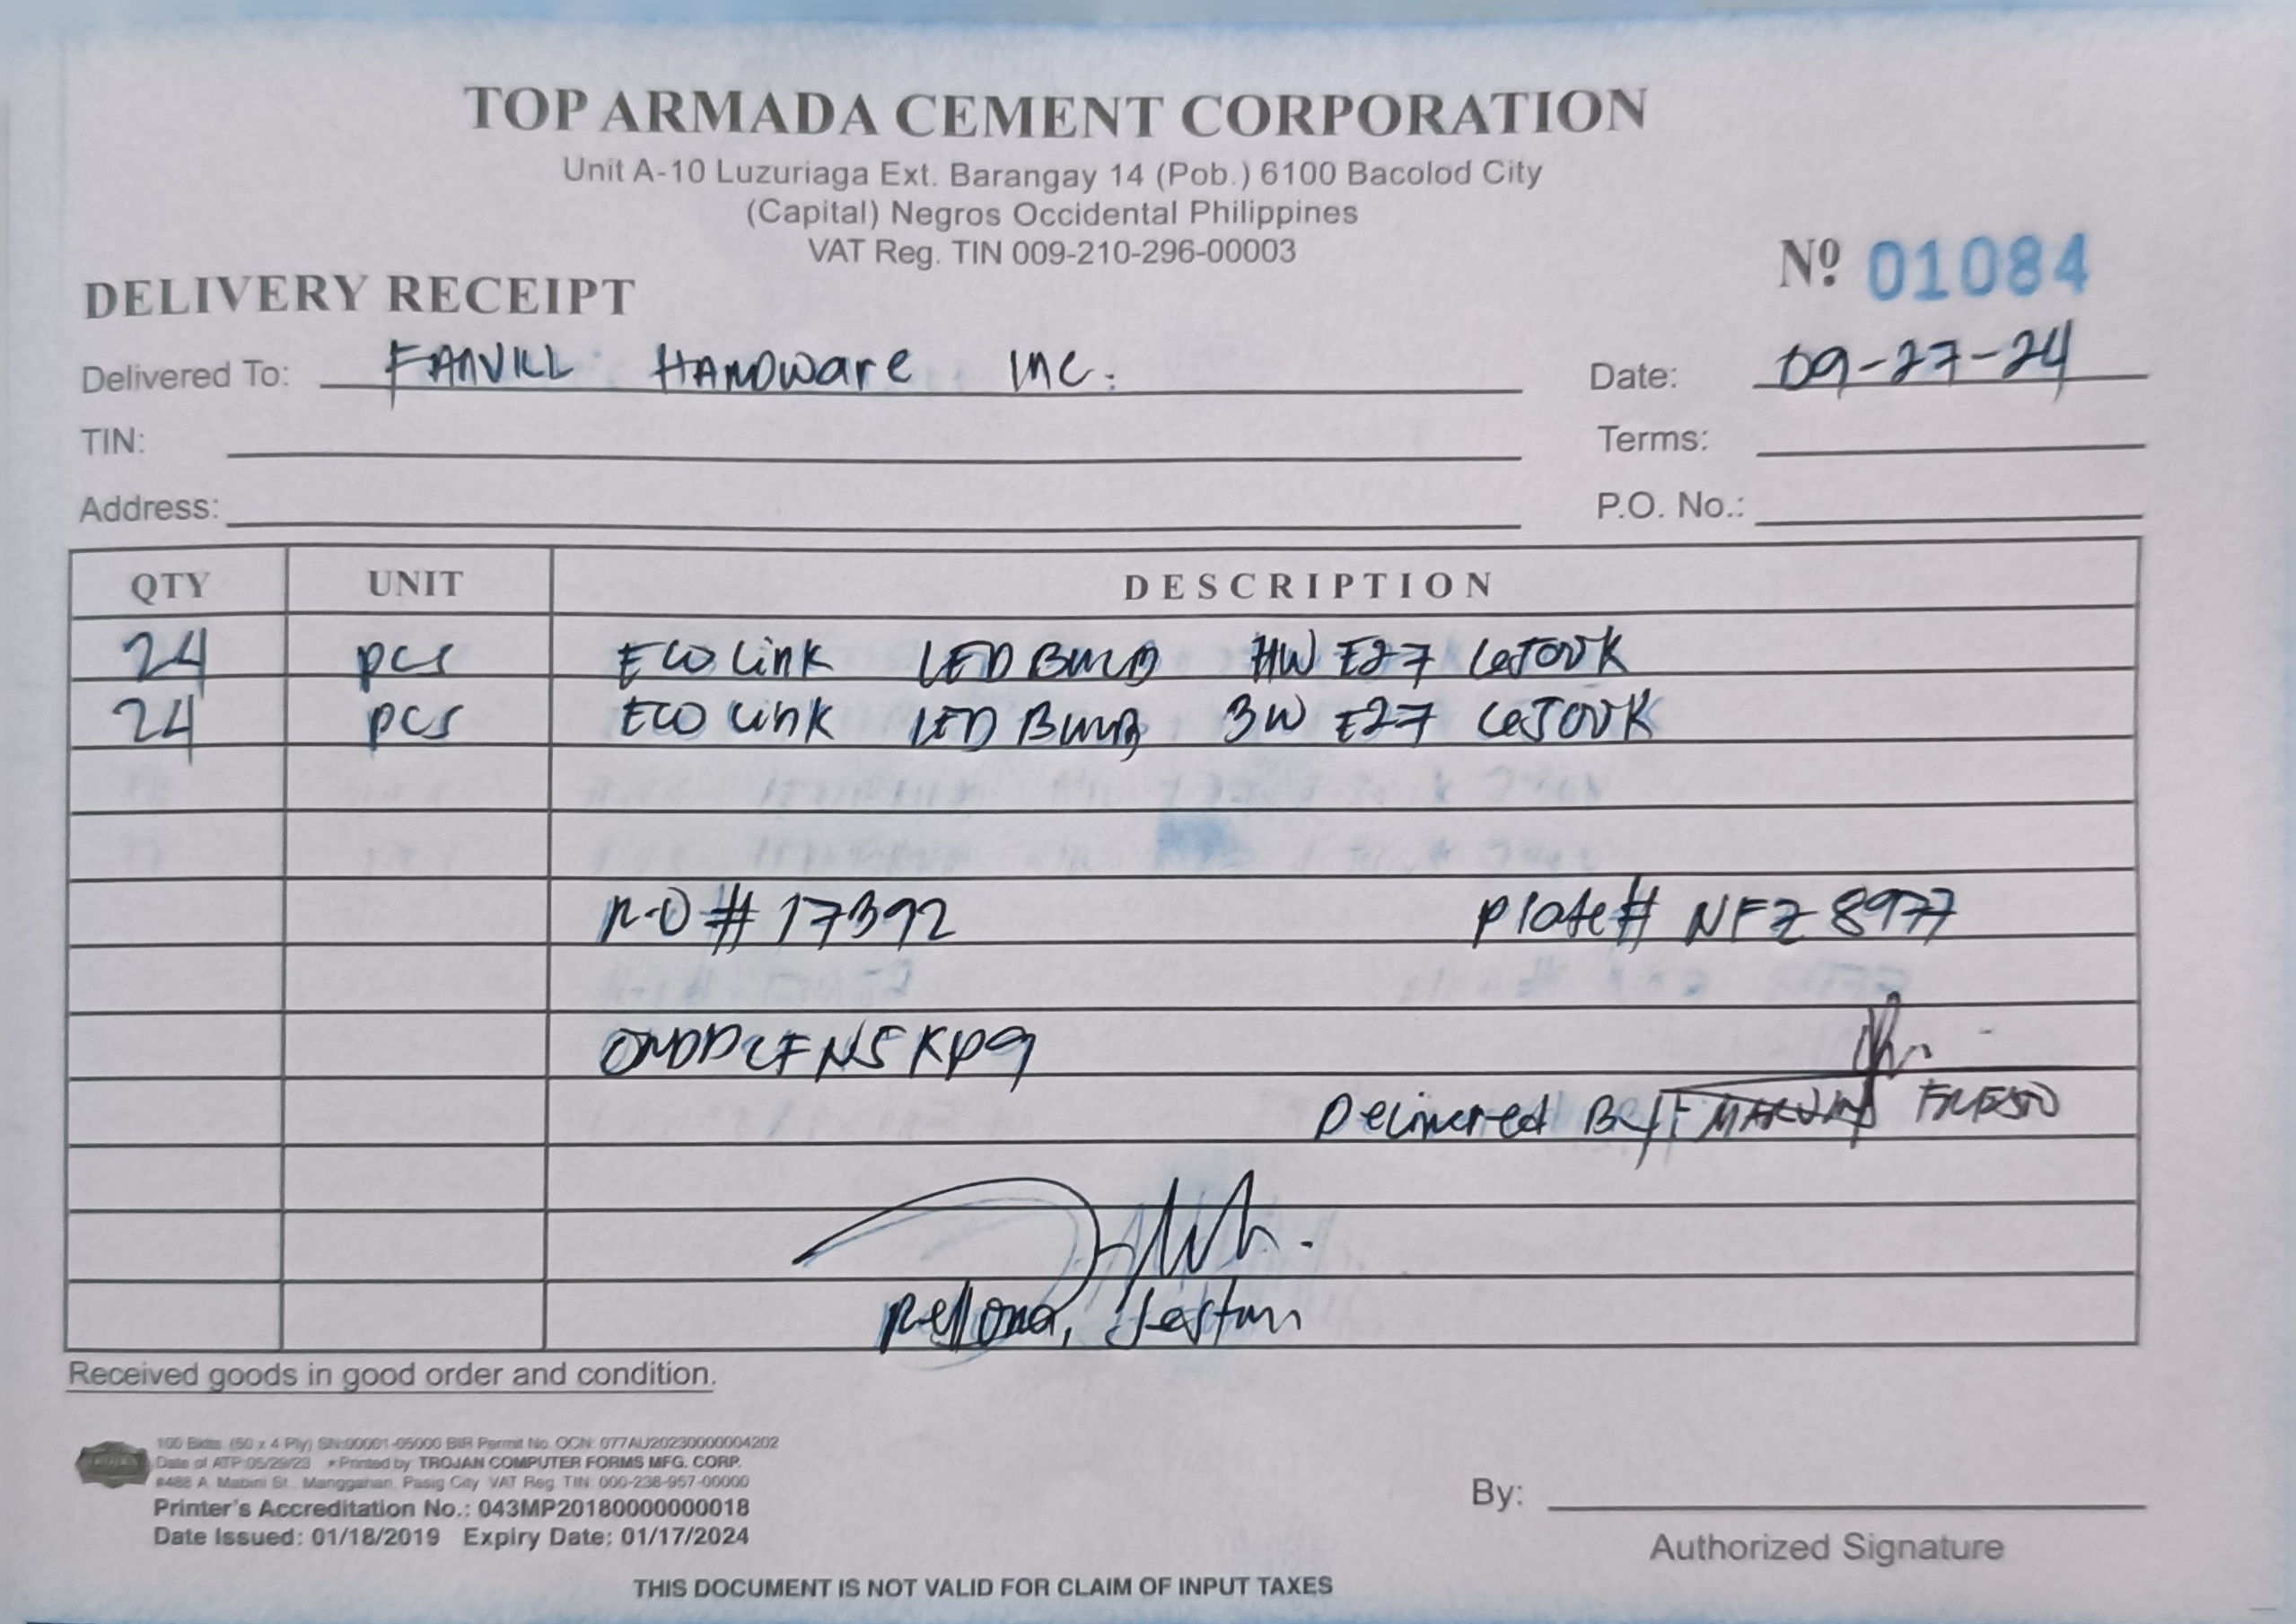 TOP ARMADA CEMENT CORPORATION
Unit A-10 Luzuriaga Ext. Barangay 14 (Pob.) 6100 Bacolod City
(Capital) Negros Occidental Philippines
VAT Reg. TIN 009-210-296-00003
Nº 01084
DELIVERY RECEIPT
Delivered To: FANVILL HARDware INC. Date: 09-27-24
TIN: Terms:
Address: P.O. No.:
QTY UNIT DESCRIPTION
24 pcs ECO Link LED BULB HW E27 6500K
24 pcs ECO Link LED BULB 3W E27 6500K
R-O # 17392 Plate# NFZ 8977
Delivered By:
Rellona,
Received goods in good order and condition.
100 Bklts. (50 x 4 Ply) SN:00001-05000 BIR Permit No. OCN: 077AU20230000004202
Date of ATP:05/29/23 • Printed by: TROJAN COMPUTER FORMS MFG. CORP.
#488 A. Mabini St., Manggahan, Pasig City VAT Reg. TIN: 000-238-957-00000
Printer's Accreditation No.: 043MP20180000000018
Date Issued: 01/18/2019 Expiry Date: 01/17/2024
By:
Authorized Signature
THIS DOCUMENT IS NOT VALID FOR CLAIM OF INPUT TAXES